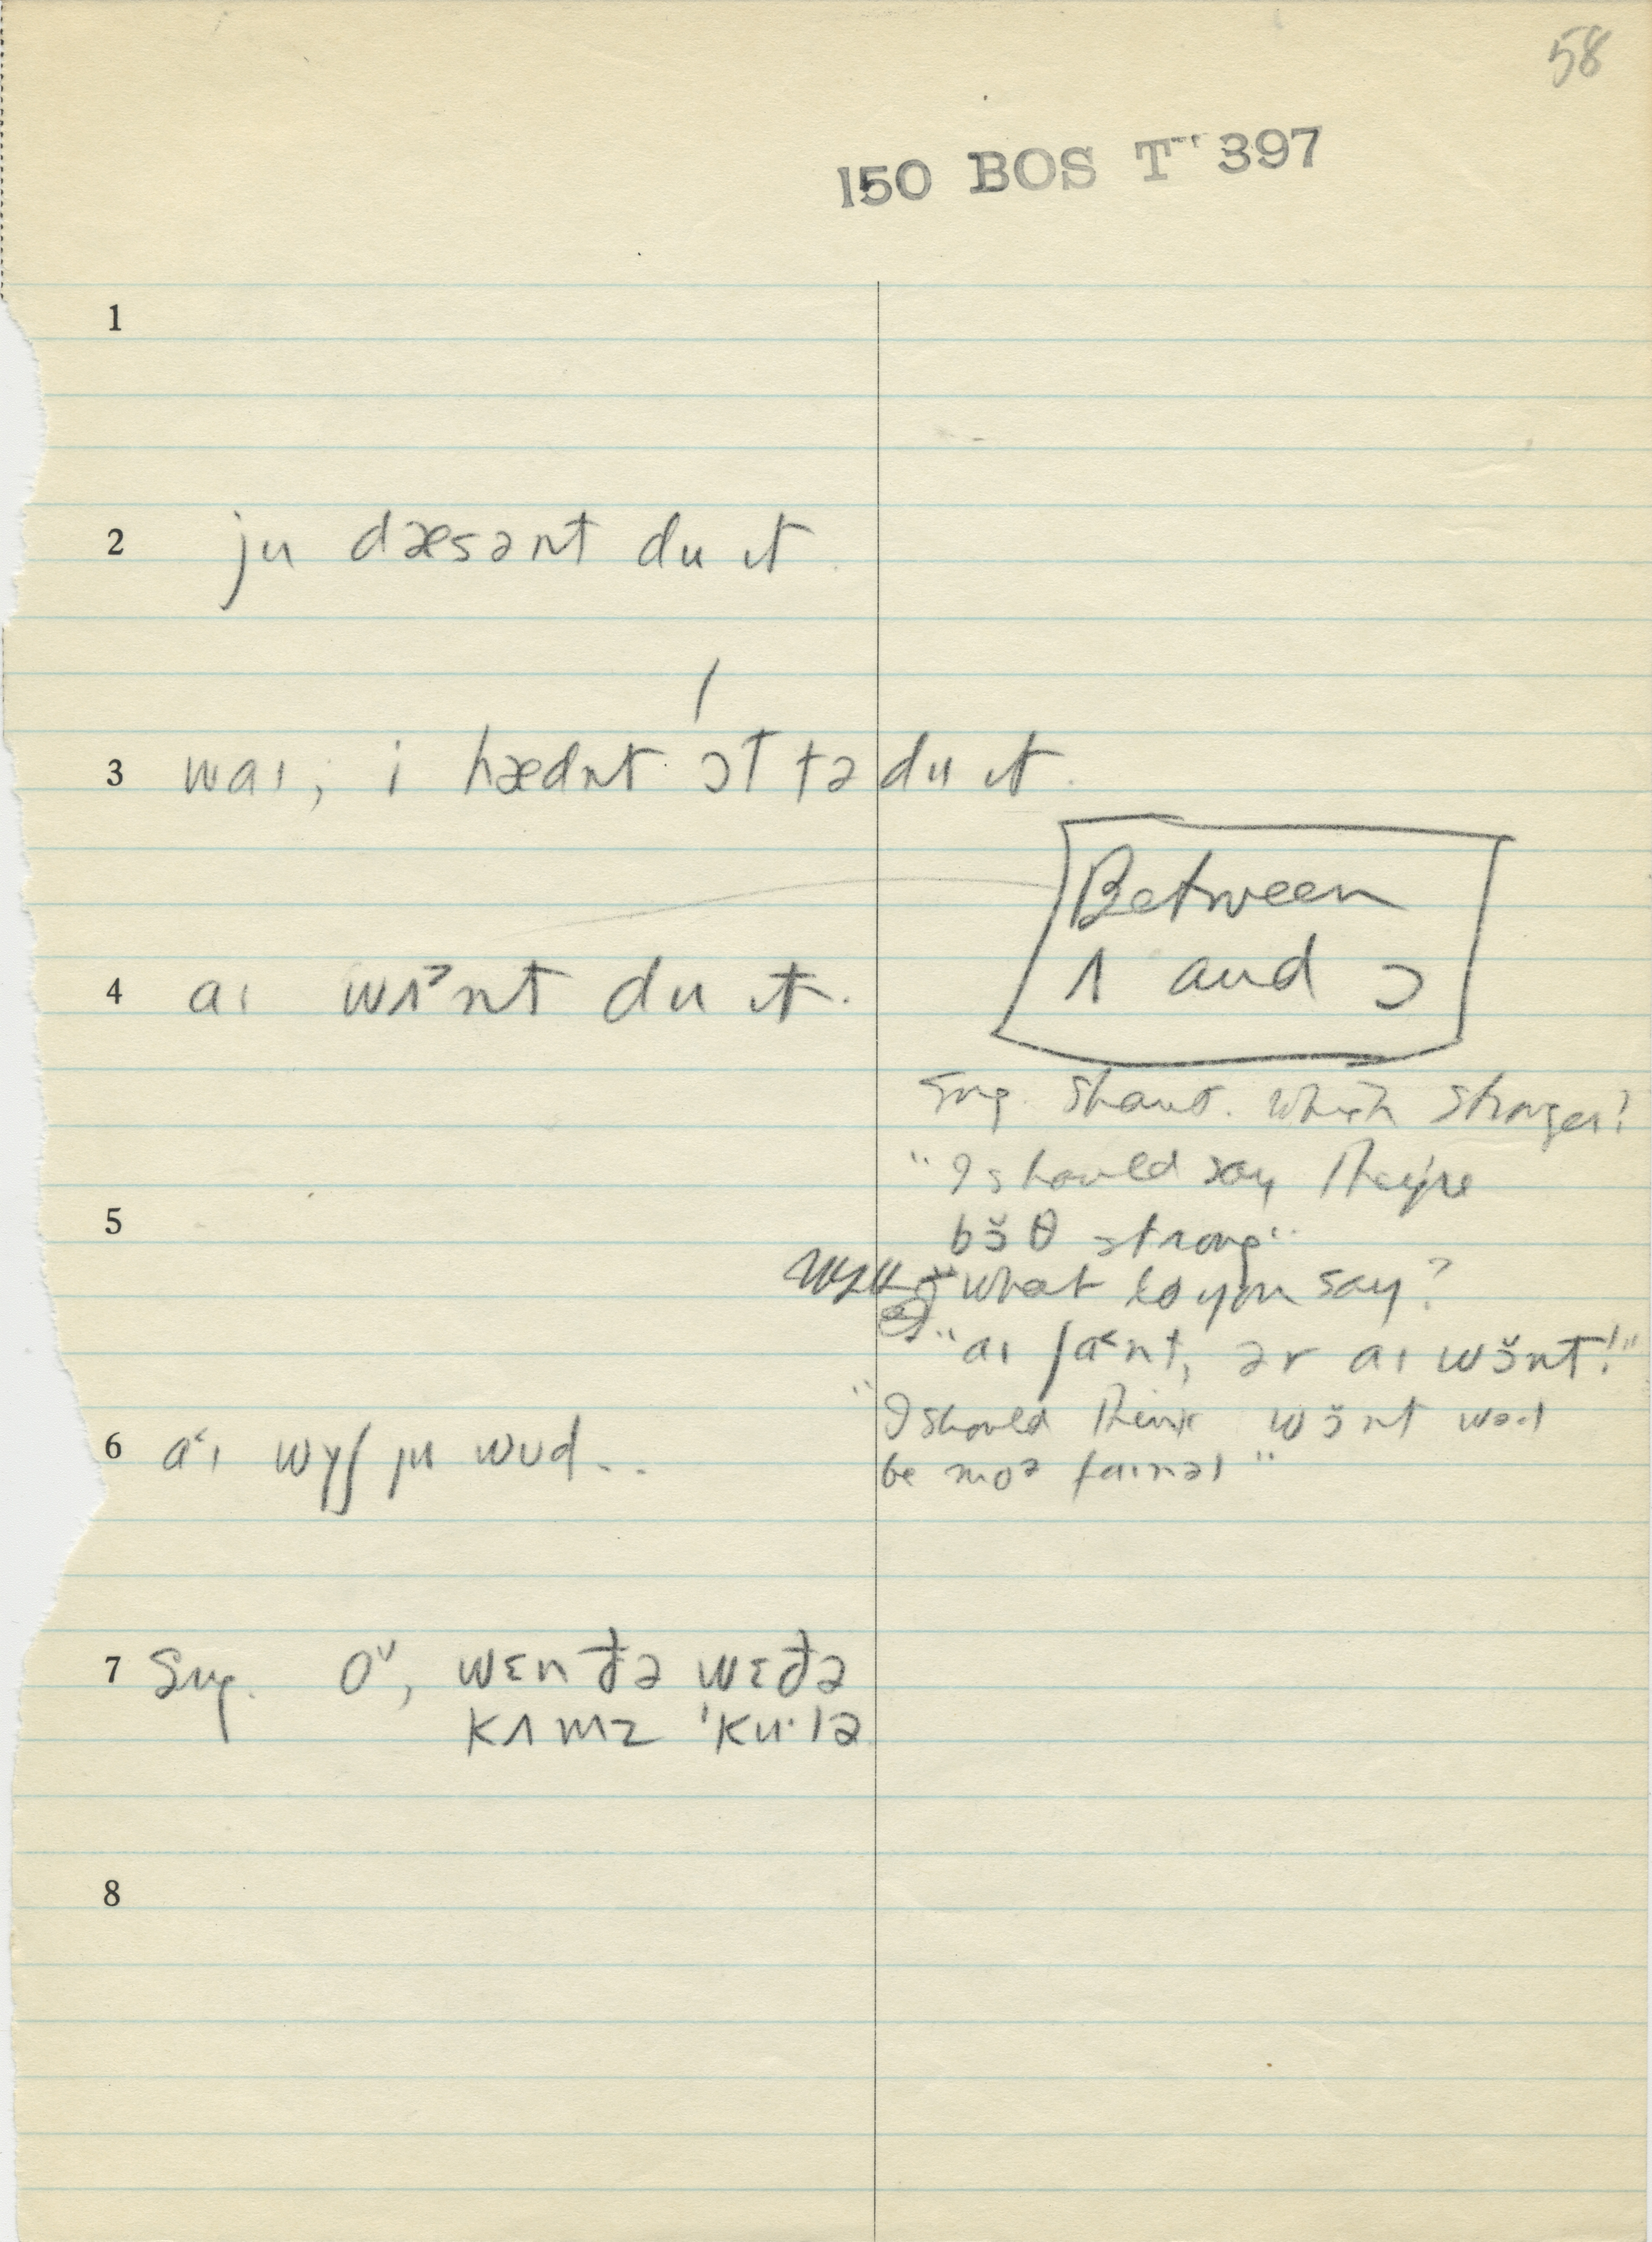 58
150 BOS T 397
1
2 ju dæsənt du ɪt.
3 waɪ, i hædnt ɔt tə du ɪt.
Between
ʌ and ɔ
4 aɪ wʌ˃nt du ɪt.
Sug. shan't. Which stronger?
"I should say they're
5 bɔ̆θ strong"
"What do you say?
"aɪ ʃa˂nt, ər aɪ wɔ̆nt!"
"I should think wɔ̆nt
6 a˂ɪ wyʃ ju wud..
be moə faɪnəl"
7 Sug. oᵛ, wɛn ðə wɛðə
kʌmz ˈku·lə
8